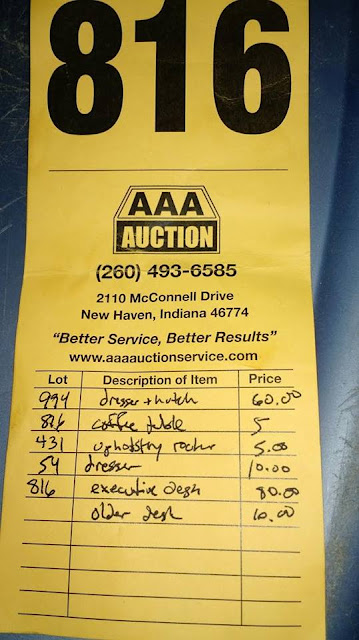 816
AAA
AUCTION
(260) 493-6585
2110 McConnell Drive
New Haven, Indiana 46774
"Better Service, Better Results"
www.aaaauctionservice.com
Lot Description of Item Price
994 dresser + hutch 60.00
816 coffee table 5
431 upholstry rocker 5.00
54 dresser 10.00
816 executive desk 80.00
older desk 10.00